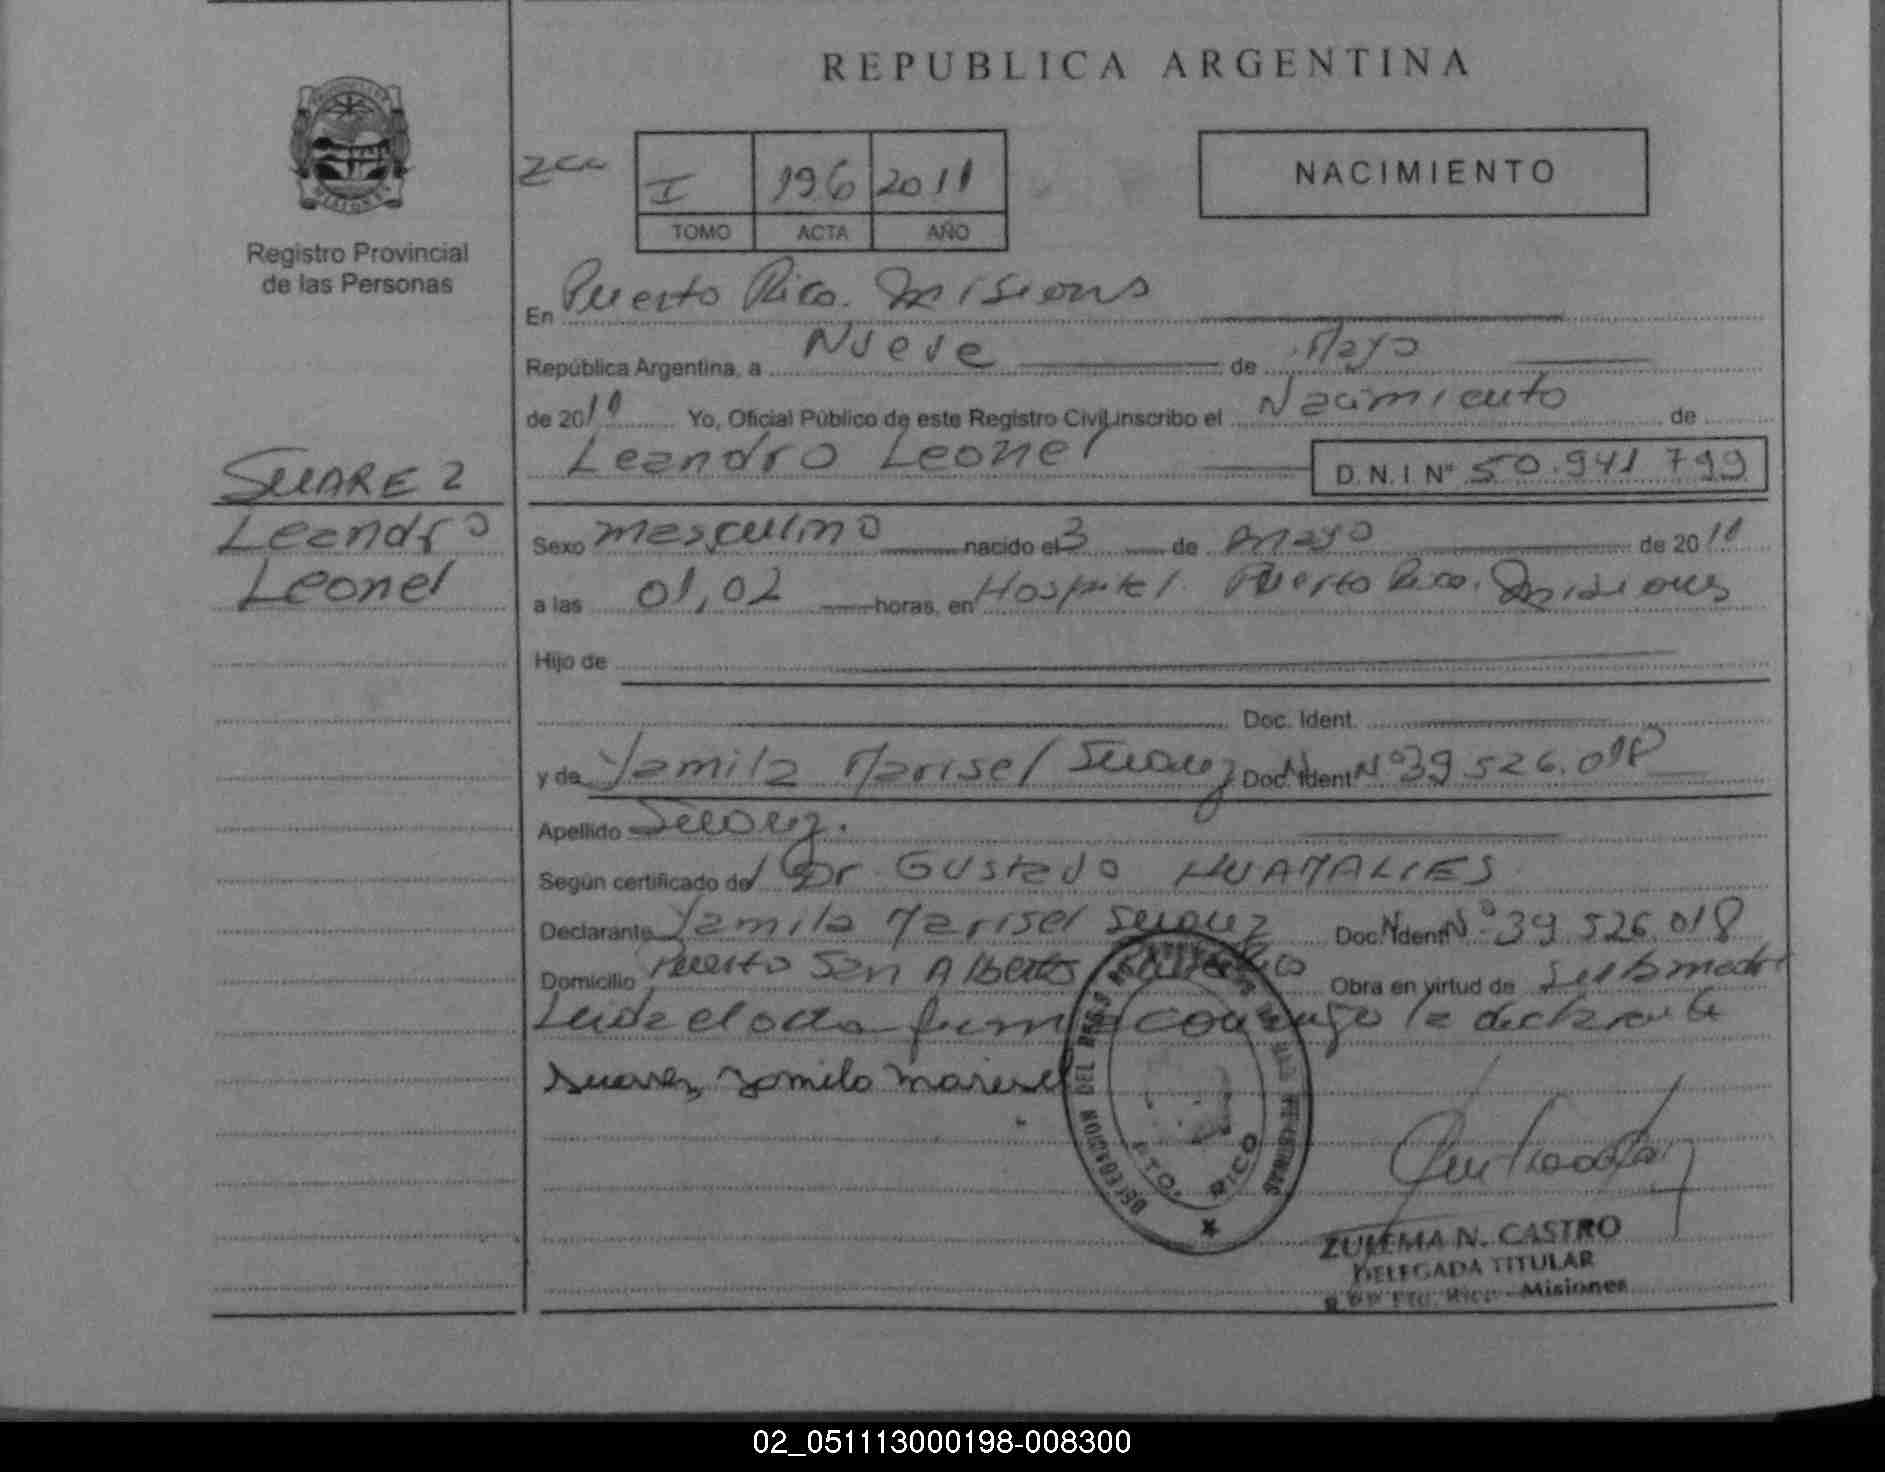 REPUBLICA ARGENTINA
I 196 2011
TOMO ACTA AÑO
NACIMIENTO
Registro Provincial
de las Personas
En Puerto Rico. Misiones
República Argentina, a Nueve de Mayo
de 2011 Yo, Oficial Público de este Registro Civil inscribo el Nacimiento de
Leandro Leonel D.N.I Nº 50.941.799
SUAREZ
Leandro
Leonel
Sexo masculino nacido el 3 de mayo de 2011
a las 01,02 horas, en Hospital Puerto Rico. Misiones
Hijo de
Doc. Ident.
y de Yamila Marisel Suarez Doc. Ident Nº 39 526.018
Apellido Suarez.
Según certificado del Dr Gustavo HUAMALIES
Declarante Yamila Marisel Suarez Doc. Ident Nº 39 526.018
Domicilio Puerto San Alberto Obra en virtud de su madre
Leida el acta firma conmigo la declarante
Suarez, Yamila Marisel
DELEGACION DEL REG. DE LAS PERSONAS
PTO. RICO
ZULEMA N. CASTRO
DELEGADA TITULAR
R.P.P. Pto. Rico - Misiones
02_051113000198-008300